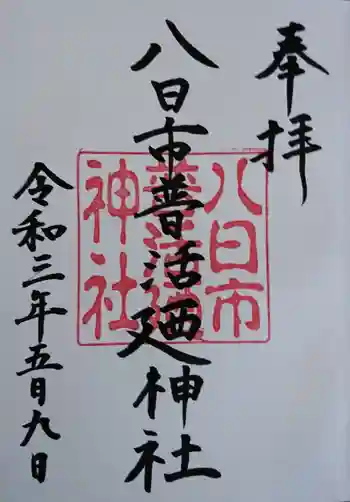 奉拝
八日市普活廼神社
令和三年五月九日
八日市
神社